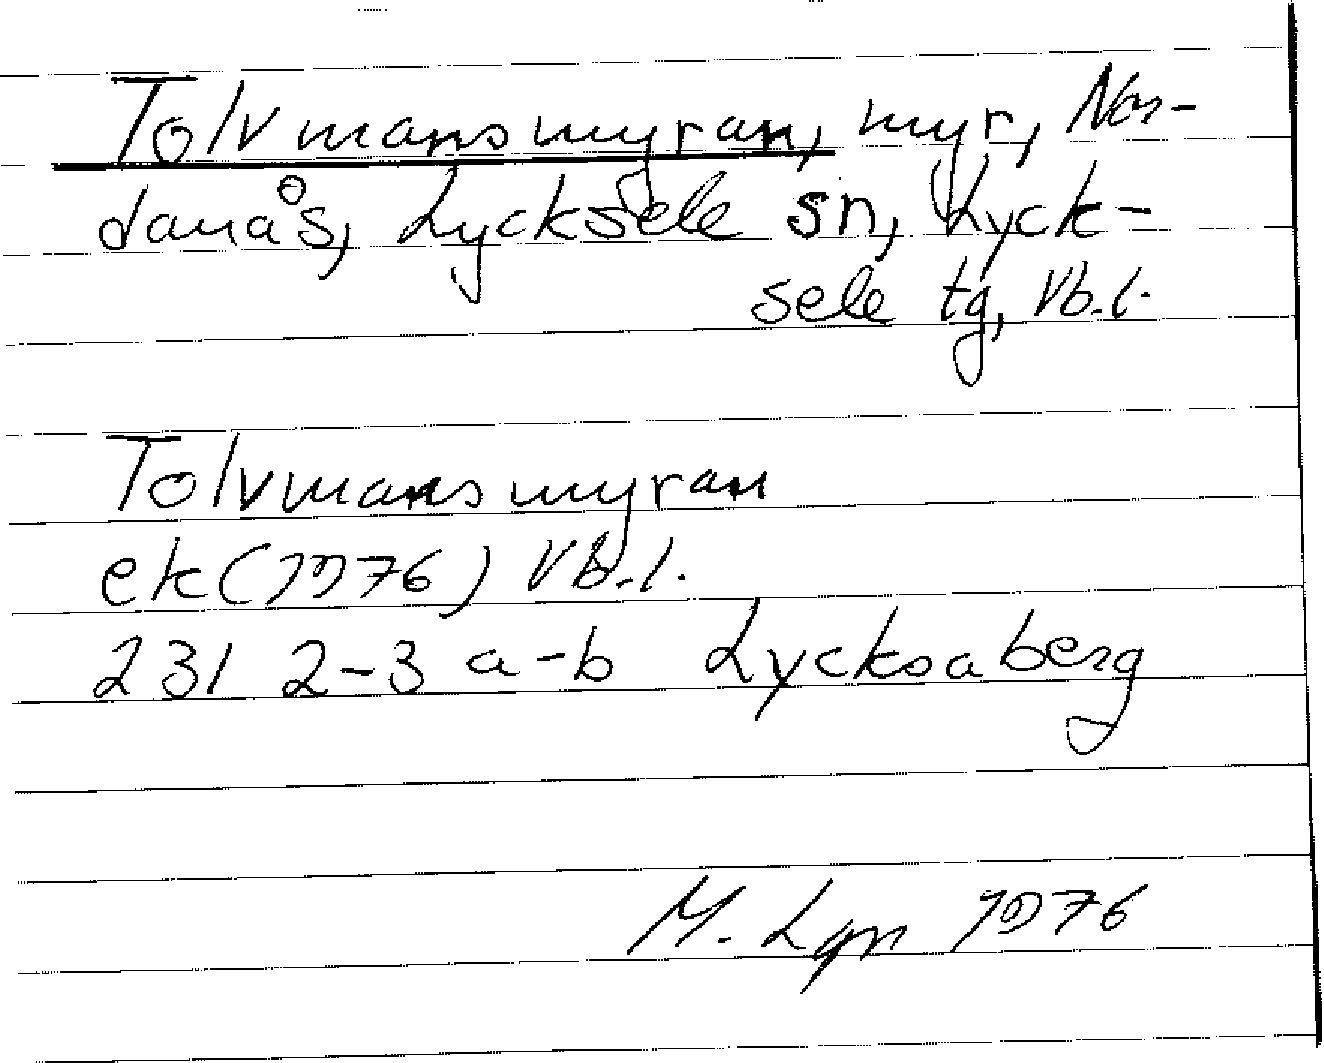 Tolvmansmyran, myr, Nor-
danås, Lycksele sn, Lyck-
sele tg, Vb.l.
Tolvmansmyran
ek (1976) Vb.l.
231 2-3 a-b Lycksaberg
M. Lgn 1976